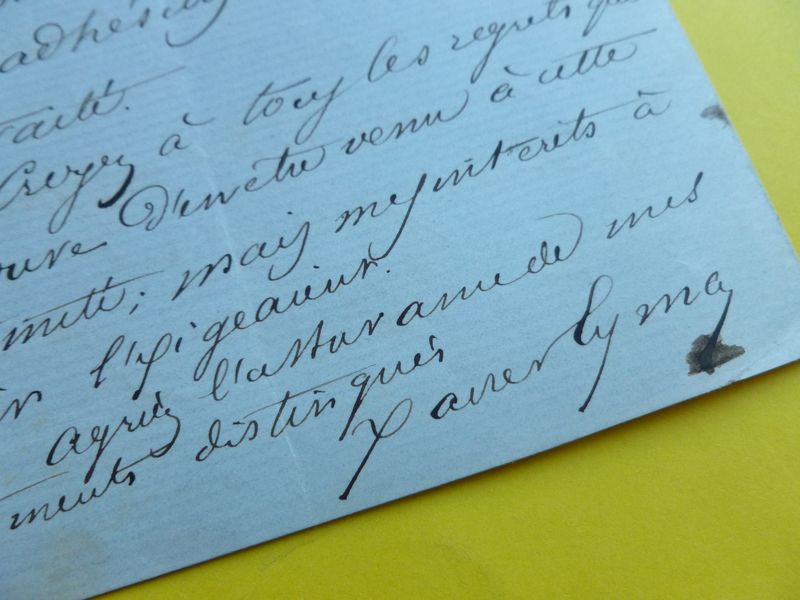 adhési
raité.
Croyez à tous les regrets que
ouve d'en être venu à cette
imité; mais mes intérêts à
l'exigeaient.
agréez l'assurance de mes
ments distingués
Xavier Lyma